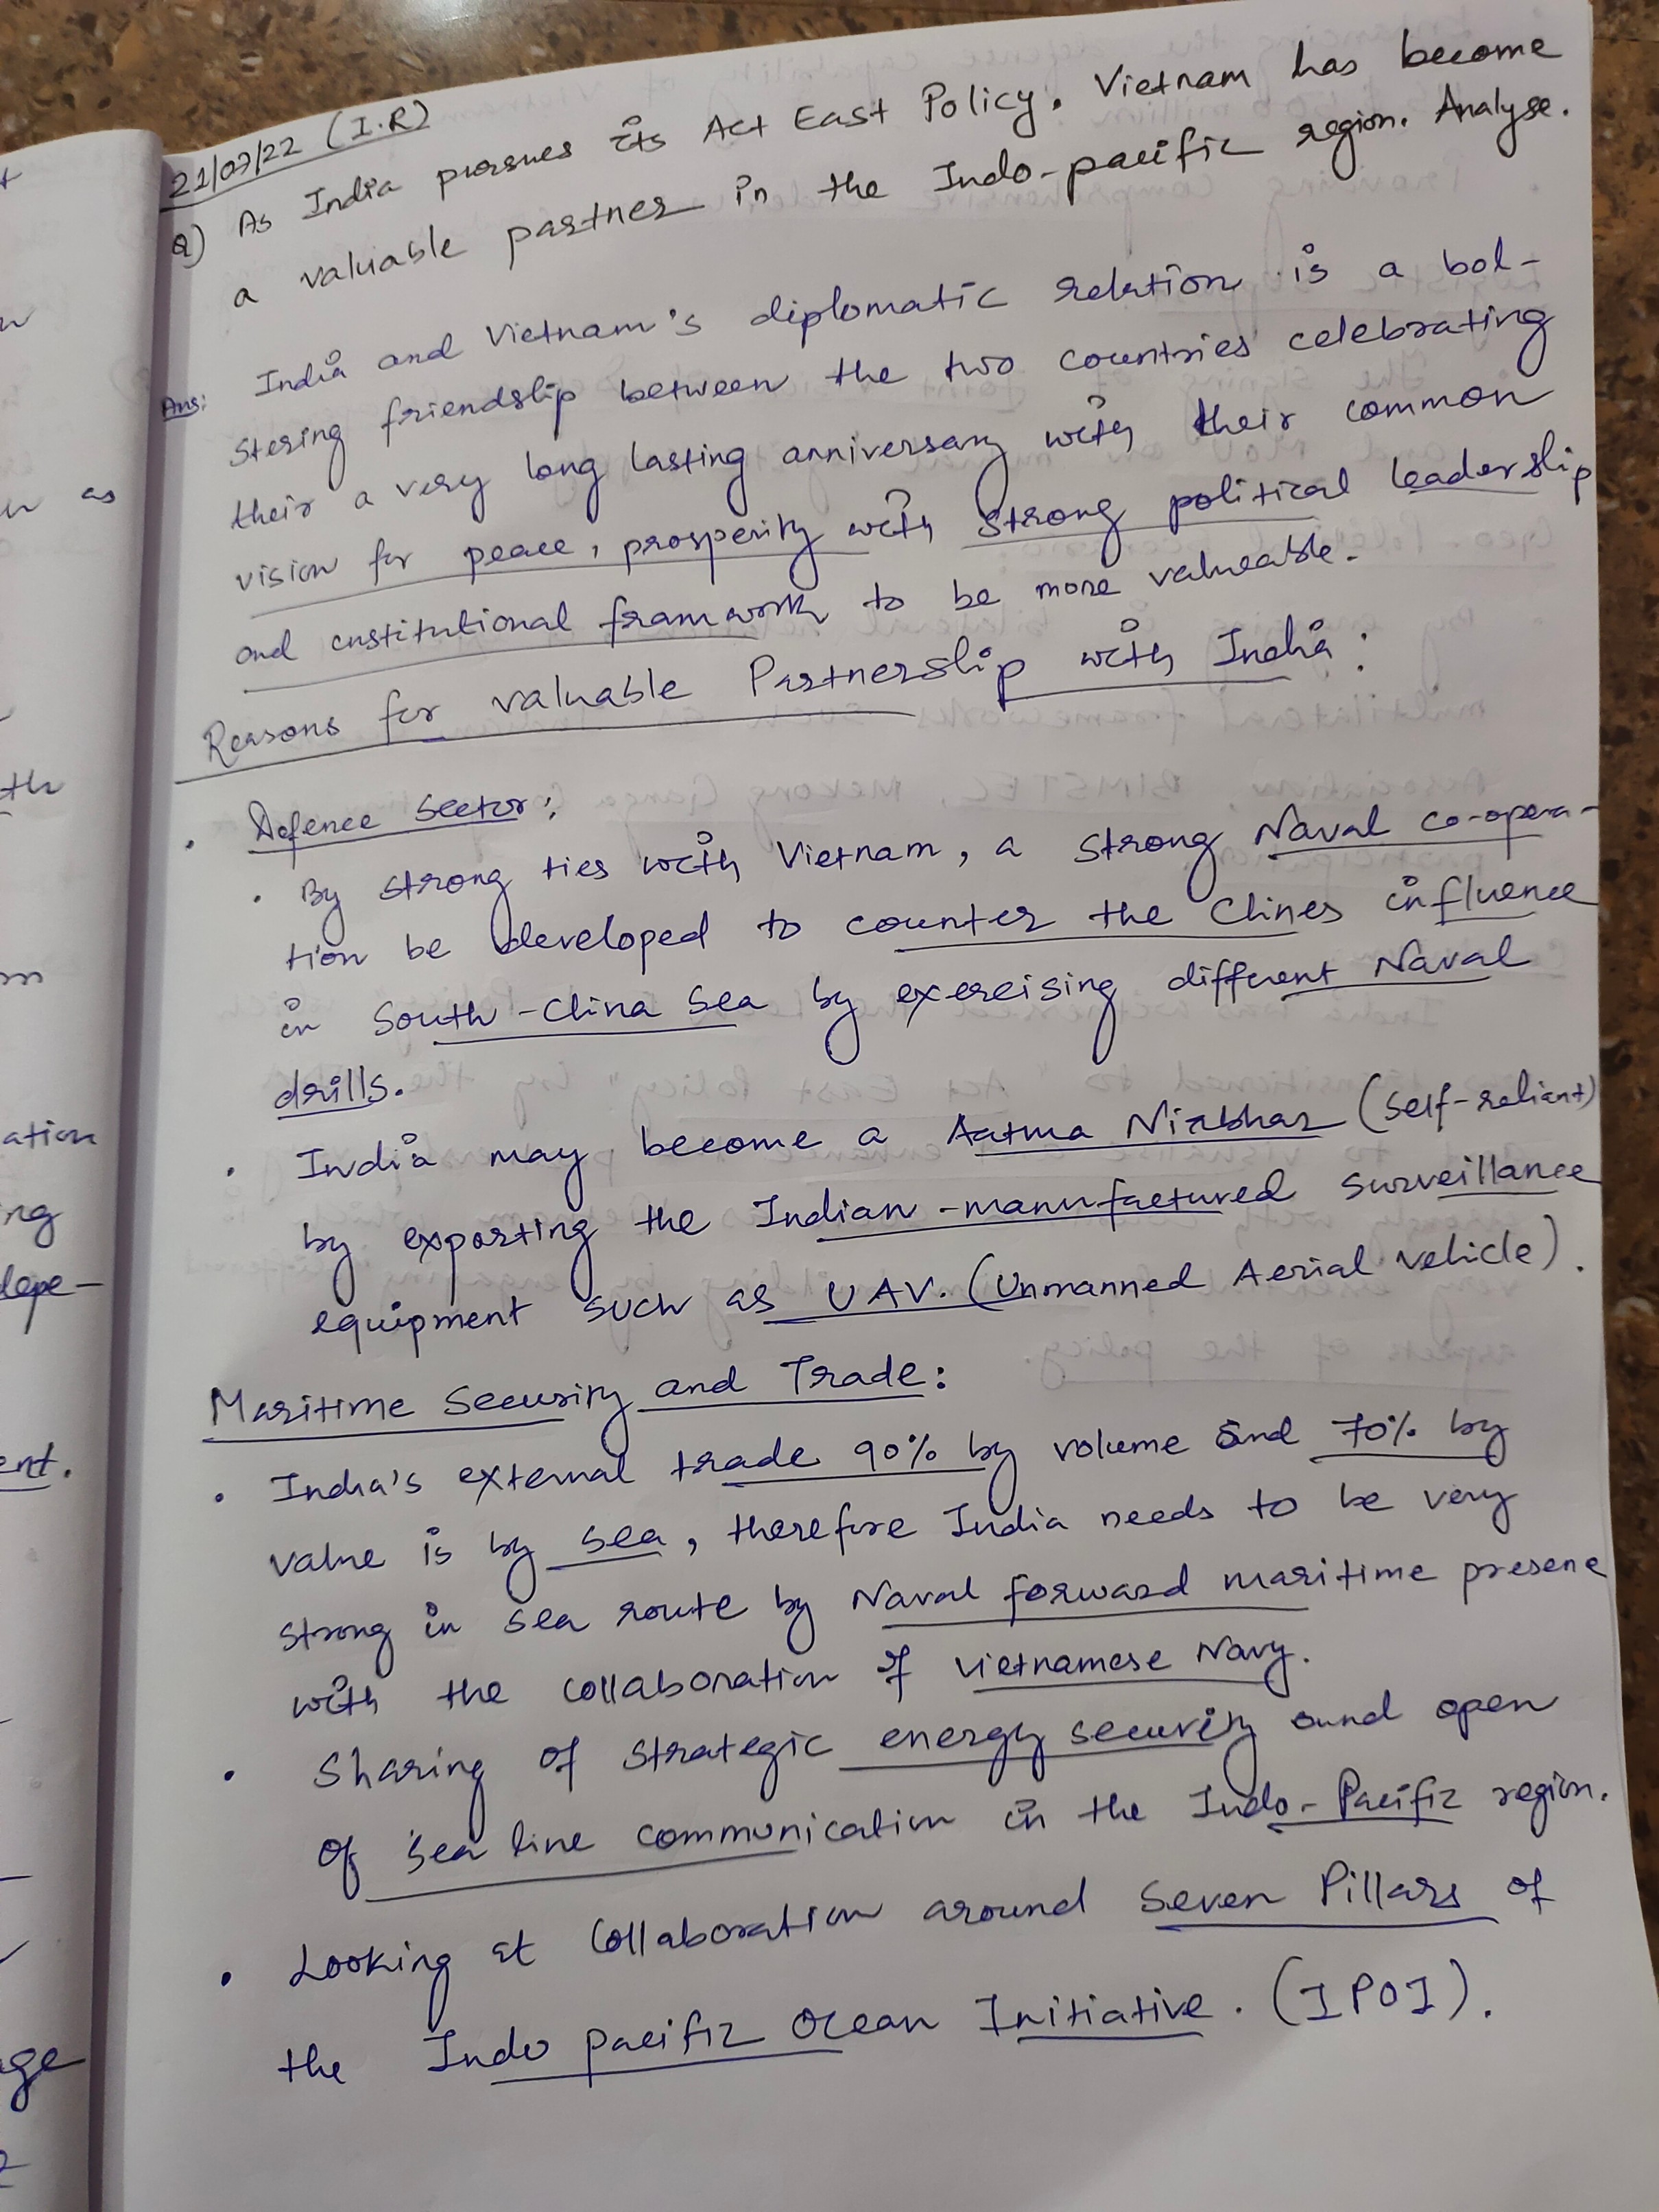 21/07/22 (I.R)
Q) As India pursues its Act East Policy. Vietnam has become
a valuable partner in the Indo-pacific region. Analyse.
Ans: India and Vietnam's diplomatic relation is a bol-
stering friendship between the two countries celebrating
their a very long lasting anniversary with their common
vision for peace, prosperity with strong political leadership
and institutional framwork to be more valueable.
Reasons for valuable Partnership with India:
• Defence Sector:
• By strong ties with Vietnam, a strong Naval co-opera-
tion be developed to counter the Chines influence
in South-China Sea by exercising different Naval
drills.
• India may become a Aatma Nirbhar (Self-reliant)
by exporting the Indian-manufactured surveillance
equipment such as UAV. (Unmanned Aerial vehicle).
Maritime Security and Trade:
• India's external trade 90% by volume and 70% by
value is by sea, therefore India needs to be very
strong in sea route by Naval forward maritime presene
with the collaboration of Vietnamese Navy.
• Sharing of strategic energy security and open
of sea line communication in the Indo-Pacific region.
• Looking at Collaboration around Seven Pillars of
the Indo pacific Ocean Initiative. (IPOI).
as
th
ation
ng
depe-
ent.
age